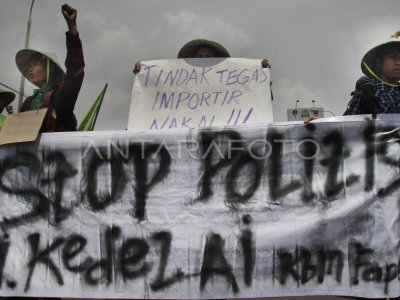 TINDAK TEGAS
IMPORTIR
NAKAL !!!
ANTARAFOTO
STOP POLITIS
KedeLAi KBM Fape